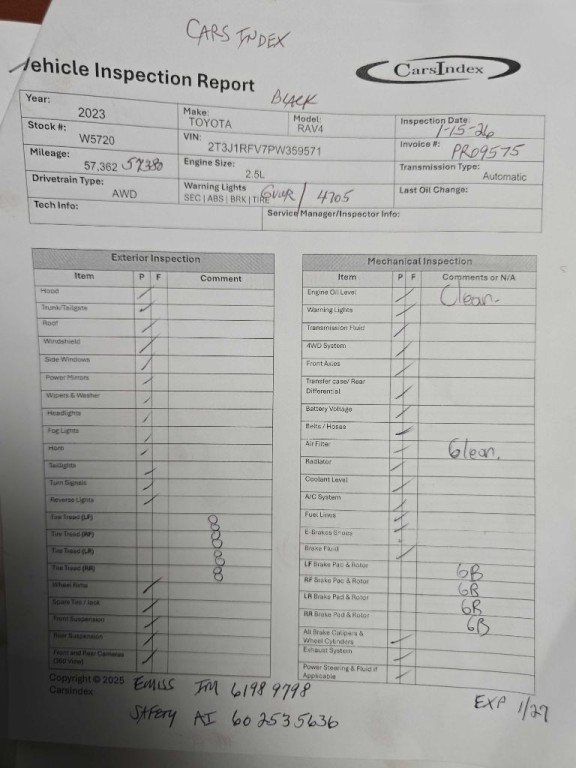 CARS INDEX
Vehicle Inspection Report
CarsIndex
BLACK
Year: 2023
Make: TOYOTA
Model: RAV4
Inspection Date: 1-15-26
Stock #: W5720
VIN: 2T3J1RFV7PW359571
Invoice #: PR09575
Mileage: 57,362 57380
Engine Size: 2.5L
Transmission Type: Automatic
Drivetrain Type: AWD
Warning Lights SEC | ABS | BRK | TIRE 4705
Last Oil Change:
Tech Info:
Service Manager/Inspector Info:
Exterior Inspection
Item P F Comment
Hood
Trunk/Tailgate
Roof
Windshield
Side Windows
Power Mirrors
Wipers & Washer
Headlights
Fog Lights
Horn
Taillights
Turn Signals
Reverse Lights
Tire Tread (LF) 8
Tire Tread (RF) 8
Tire Tread (LR) 8
Tire Tread (RR) 8
Wheel Rims
Spare Tire / Jack
Front Suspension
Rear Suspension
Front and Rear Cameras
(360 View)
Mechanical Inspection
Item P F Comments or N/A
Engine Oil Level Clean.
Warning Lights
Transmission Fluid
4WD System
Front Axles
Transfer case/ Rear
Differential
Battery Voltage
Belts / Hoses
Air Filter Clean.
Radiator
Coolant Level
A/C System
Fuel Lines
E-Brakes Shoes
Brake Fluid
LF Brake Pad & Rotor 6B
RF Brake Pad & Rotor 6B
LR Brake Pad & Rotor 6B
RR Brake Pad & Rotor 6B
All Brake Calipers &
Wheel Cylinders
Exhaust System
Power Steering & Fluid if
Applicable
Copyright © 2025
CarsIndex
EMISS IM 61989798
SAFETY AI 602535636
EXP 1/27